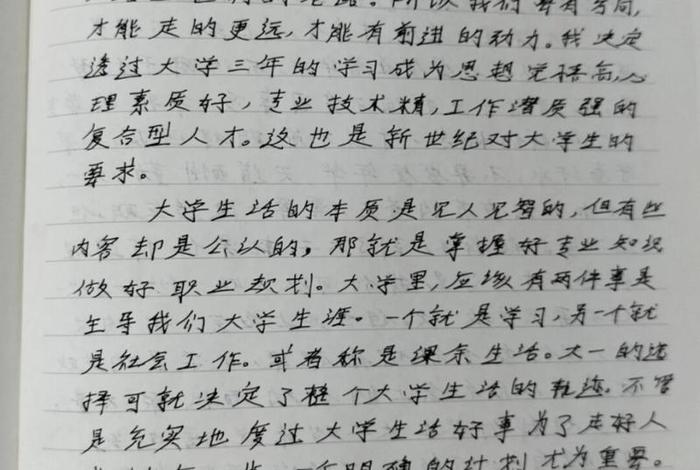 所以我们要有方向,
才能走的更远,才能有前进的动力。我决定
透过大学三年的学习成为思想觉悟高,心
理素质好,专业技术精,工作潜质强的
复合型人才。这也是新世纪对大学生的
要求。
大学生活的本质是见人见智的,但有些
内容却是公认的,那就是掌握好专业知识
做好职业规划。大学里,应该有两件事是
主导我们大学生涯。一个就是学习,另一个就
是社会工作。或者称是课余生活。大一的选
择可就决定了整个大学生活的轨迹。不管
是充实地度过大学生活好事为了走好人
一个明确的计划尤为重要。